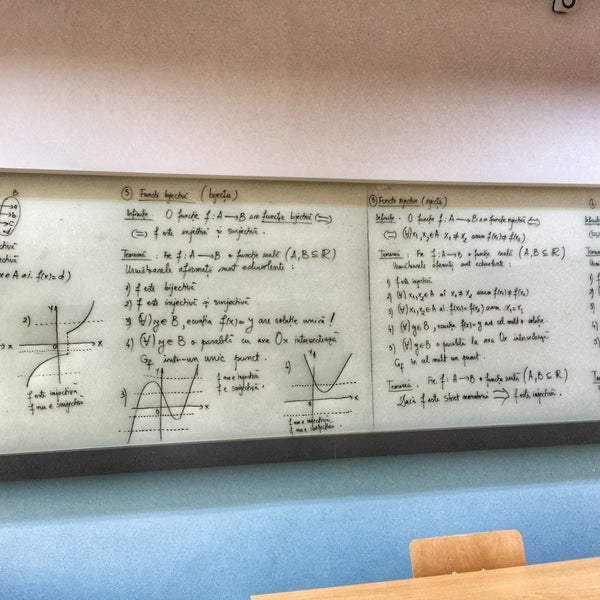 B
a
b
c
d
x∈A a.î. f(x)=d)
2)
y
x
0
f este injectivă
f nu e surjectivă
⑤ Funcții bijective (bijecții)
Definiție: O funcție f: A→B s.n. funcție bijectivă ⟺
⟺ f este injectivă și surjectivă.
Teremă: Fie f: A→B o funcție reală (A,B⊆ℝ)
Următoarele afirmații sunt echivalente:
1) f este bijectivă
2) f este injectivă și surjectivă
3) (∀) y∈B, ecuația f(x)=y are soluție unică!
4) (∀) y∈B o paralelă cu axa Ox intersectează
Gf într-un unic punct.
3)
y
x
0
f nu e injectivă
f e surjectivă.
4)
y
x
0
f nu e injectivă
f nu e surjectivă.
③ Funcții injective (injecții)
Definiție: O funcție f: A→B s.n. funcție injectivă ⟺
⟺ (∀) x₁,x₂∈A x₁≠x₂ avem f(x₁)≠f(x₂)
Teremă: Fie f: A→B o funcție reală (A,B⊆ℝ)
Următoarele afirmații sunt echivalente:
1) f este injectivă
2) (∀) x₁,x₂∈A ai x₁≠x₂ avem f(x₁)≠f(x₂)
3) (∀) x₁,x₂∈A ai. f(x₁)=f(x₂) avem x₁=x₂
4) (∀) y∈B, ecuația f(x)=y are cel mult o soluție
5) (∀) y∈B o paralelă la axa Ox intersectează
Gf în cel mult un punct.
Teremă: Fie f: A→B o funcție reală (A,B⊆ℝ)
Dacă f este strict monotonă ⟹ f este injectivă.